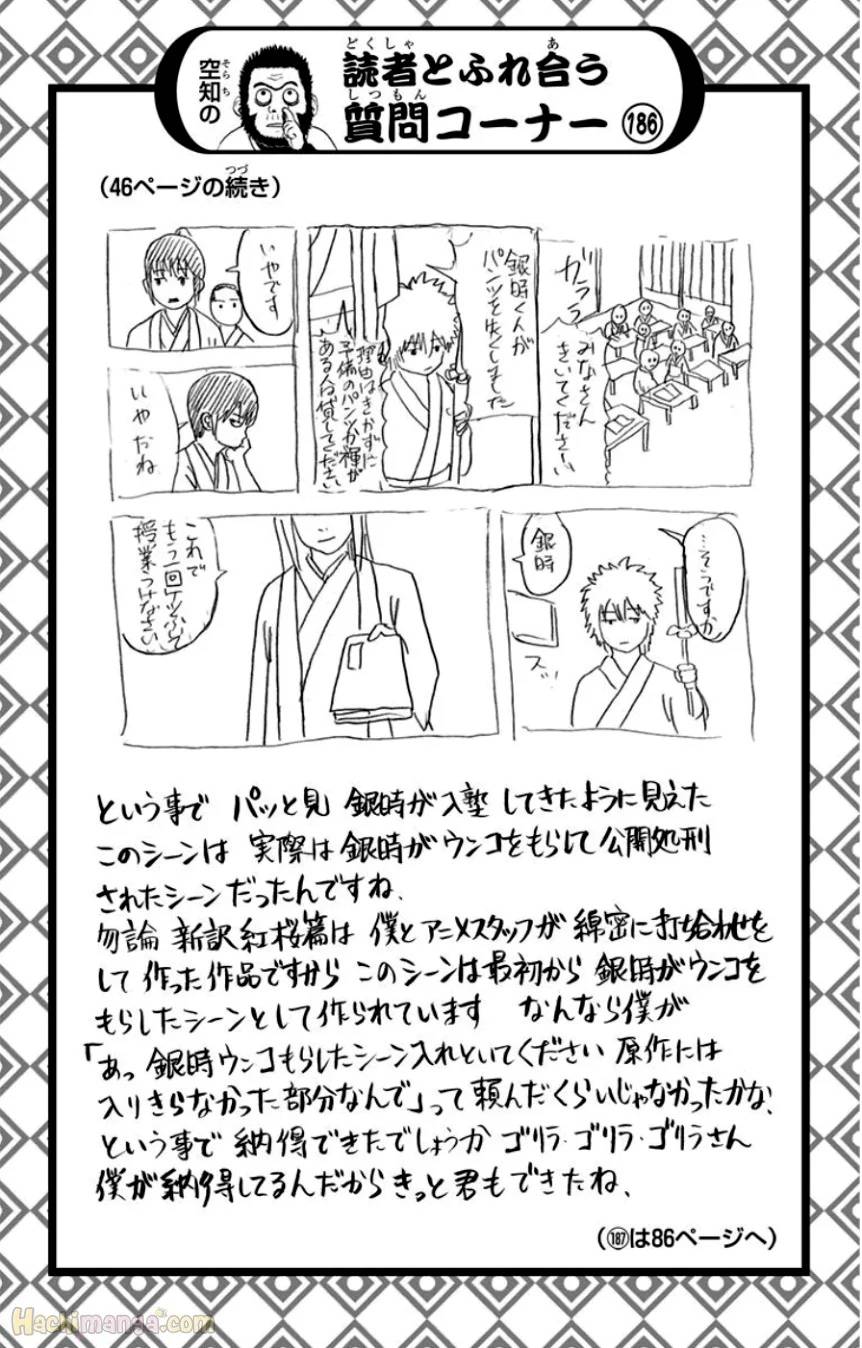 空知の
そらち
読者とふれ合う
どくしゃ
あ
質問コーナー 186
しつもん
(46ページの続き)
つづ
ガララ
みなさん
きいてください
銀時くんが
パンツを失くしました
理由はきかずに
子供のパンツか褌が
ある人は貸してください
いやです
いやだね
…そうですか
銀時
ズッ
これで
もう一回ケツふいて
授業うけなさい
という事で パッと見 銀時が入塾してきたように見えた
このシーンは 実際は銀時がウンコをもらして公開処刑
されたシーンだったんですね。
勿論 新訳紅桜篇は 僕とアニメスタッフが 綿密に打ち合わせを
して 作った作品ですから このシーンは最初から 銀時がウンコを
もらしたシーンとして作られています なんなら僕が
「あっ 銀時ウンコもらしたシーン入れといてください 原作には
入りきらなかった部分なんで」って頼んだくらいじゃなかったかな。
という事で 納得できたでしょうか ゴリラ・ゴリラ・ゴリラさん
僕が納得してるんだからきっと君もできたね。
(187は86ページへ)
Hackimanga.com